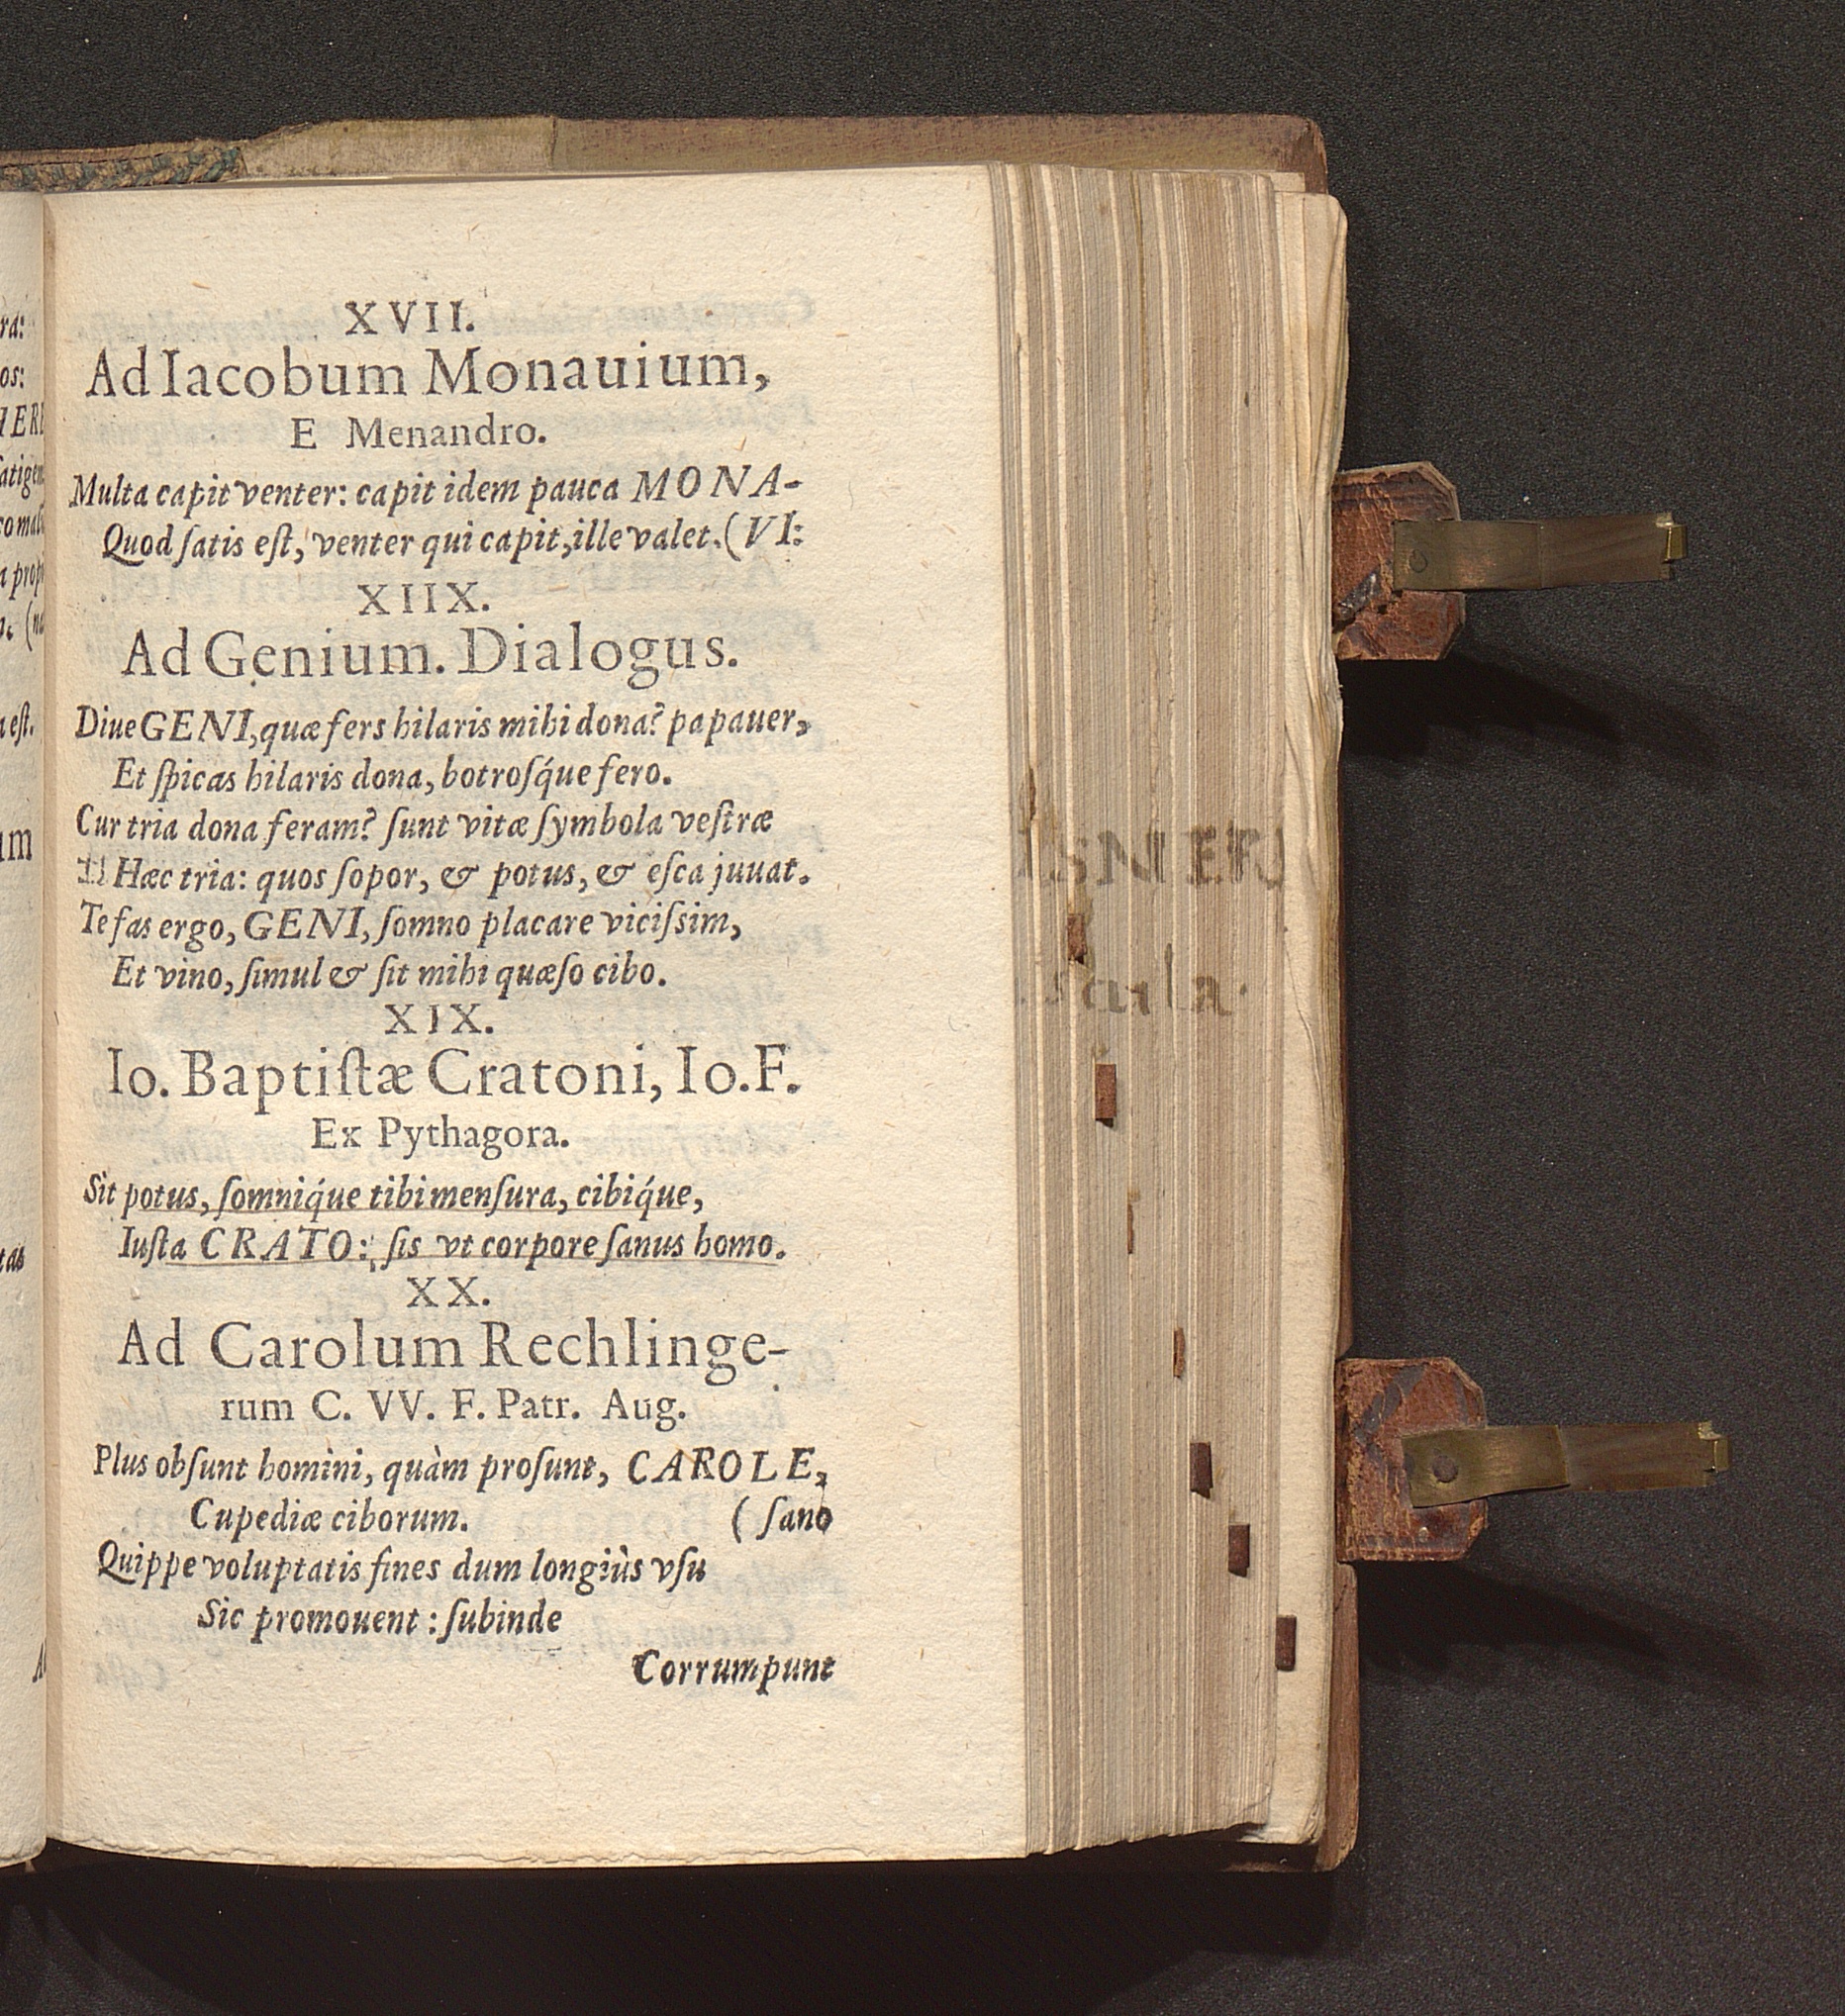 XVII.
Ad Iacobum Monauium,
E Menandro.
Multa capit venter: capit idem pauca MONA-
Quod ſatis eſt, venter qui capit, ille valet. (VI:
XIIX.
Ad Genium. Dialogus.
Diue GENI, quæ fers hilaris mihi dona? papauer,
Et ſpicas hilaris dona, botroſq́ue fero.
Cur tria dona feram? ſunt vitæ ſymbola veſtræ
Hæc tria: quos ſopor, & potus, & eſca juuat.
Te fas ergo, GENI, ſomno placare viciſsim,
Et vino, ſimul & ſit mihi quæſo cibo.
XIX.
Io. Baptiſtæ Cratoni, Io. F.
Ex Pythagora.
Sit potus, ſomniq́ue tibi menſura, cibiq́ue,
Iuſta CRATO: ſis vt corpore ſanus homo.
XX.
Ad Carolum Rechlinge-
rum C. VV. F. Patr. Aug.
Plus obſunt homini, quàm proſunt, CAROLE,
Cupediæ ciborum. (ſano
Quippe voluptatis fines dum longiùs vſu
Sic promouent: ſubinde
Corrumpunt